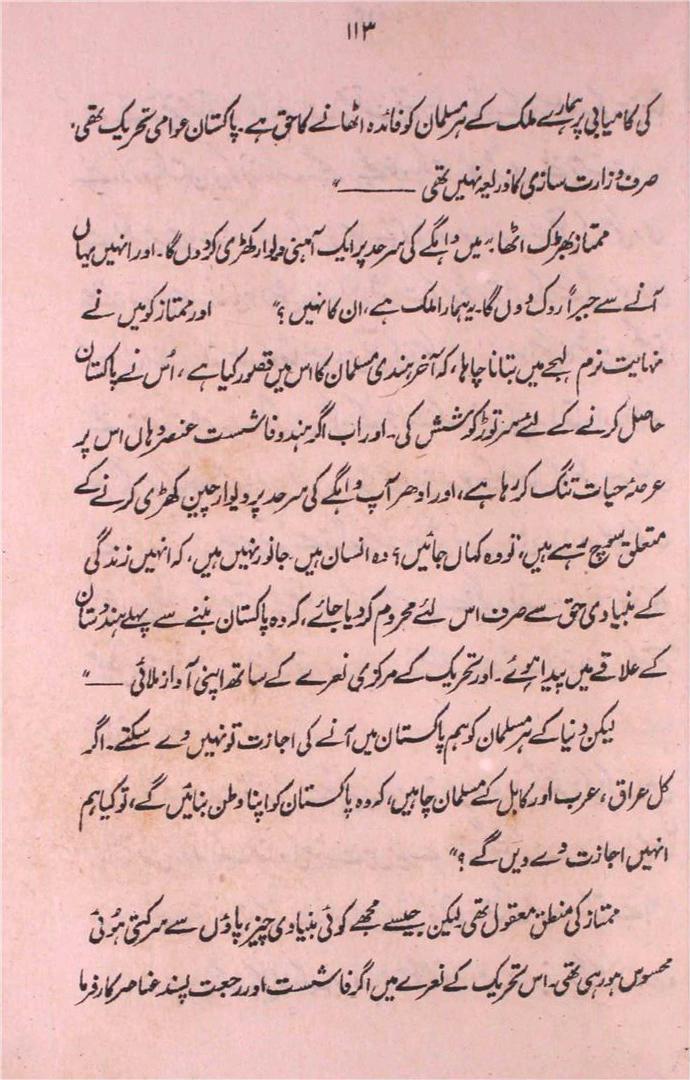 ۱۱۳
کی کامیابی پر ہمارے ملک کے ہر مسلمان کو فائدہ اٹھانے کا حق ہے۔ پاکستان عوامی تحریک تھی۔
صرف وزارت سازی کا ذریعہ نہیں تھی ———"
ممتاز بھڑک اٹھا "میں واہگے کی سرحد پر ایک آہنی دیوار کھڑی کر دوں گا۔ اور انہیں یہاں
آنے سے جبراً روک دوں گا۔ یہ ہمارا ملک ہے، ان کا نہیں؟" اور ممتاز کو میں نے
نہایت نرم لہجے میں بتانا چاہا، کہ آخر ہندی مسلمان کا اس میں قصور کیا ہے، اُس نے پاکستان
حاصل کرنے کے لئے سرتوڑ کوشش کی۔ اور اب اگر ہندو فاشست عنصر وہاں اس پر
عرصۂ حیات تنگ کر رہا ہے، اور ادھر آپ واہگے کی سرحد پر دیوار چین کھڑی کرنے کے
متعلق سوچ رہے ہیں، تو وہ کہاں جائیں؟ وہ انسان ہیں۔ جانور نہیں ہیں، کہ انہیں زندگی
کے بنیادی حق سے صرف اس لئے محروم کر دیا جائے، کہ وہ پاکستان بننے سے پہلے ہندوستان
کے علاقے میں پیدا ہوئے۔ اور تحریک کے مرکزی نعرے کے ساتھ اپنی آواز ملائی ——"
لیکن دنیا کے ہر مسلمان کو ہم پاکستان میں آنے کی اجازت تو نہیں دے سکتے۔ اگر
کل عراق، عرب اور کابل کے مسلمان چاہیں، کہ وہ پاکستان کو اپنا وطن بنائیں گے، تو کیا ہم
انہیں اجازت دے دیں گے؟"
ممتاز کی منطق معقول تھی۔ لیکن جیسے مجھے کوئی بنیادی چیز، پاؤں سے سرکتی ہوئی
محسوس ہو رہی تھی۔ اس تحریک کے نعرے میں اگر فاشست اور رجعت پسند عناصر کارفرما